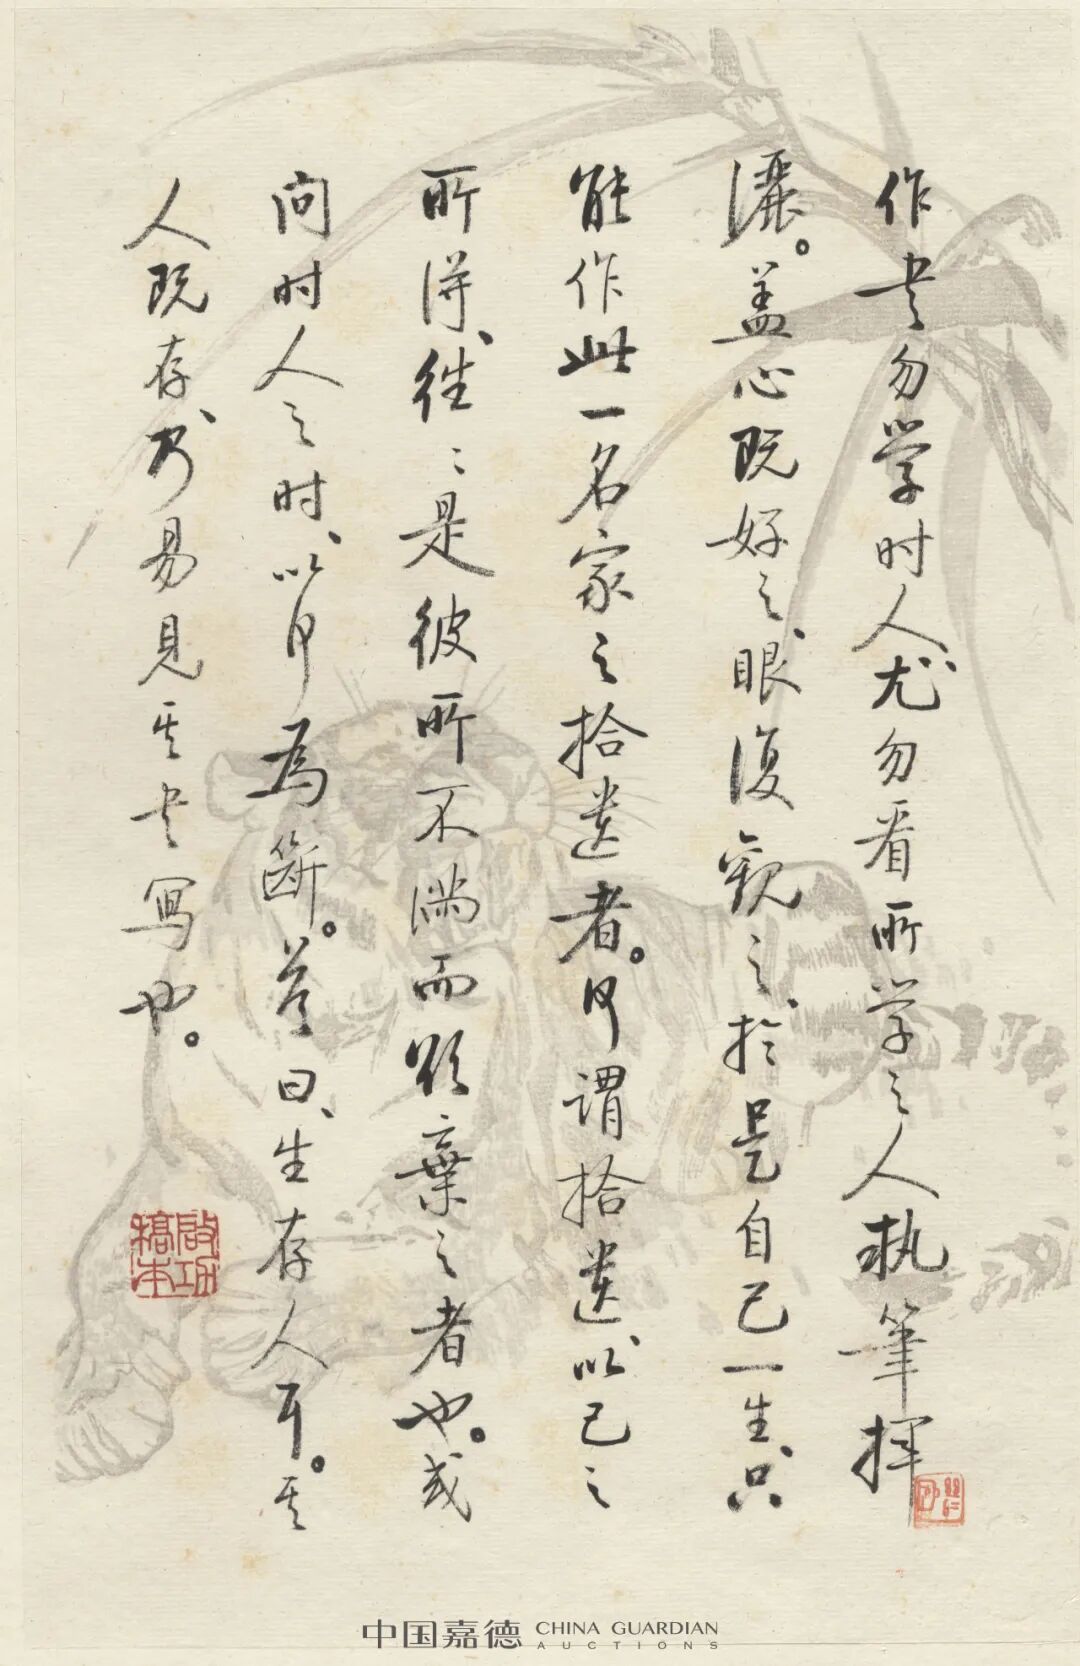 作书勿学时人、尤勿看所学之人执筆揮
灑。盖心既好之、眼復觀之、於是自己一生、只
能作此一名家之拾遺者。何謂拾遺、以己之
所得、往〻是彼所不滿而欲棄之者也。或
问时人之时、以何為斷。答曰、生存人耳。其
人既存、乃易見其书寫也。
啟功
稿本
中国嘉德 CHINA GUARDIAN
AUCTIONS